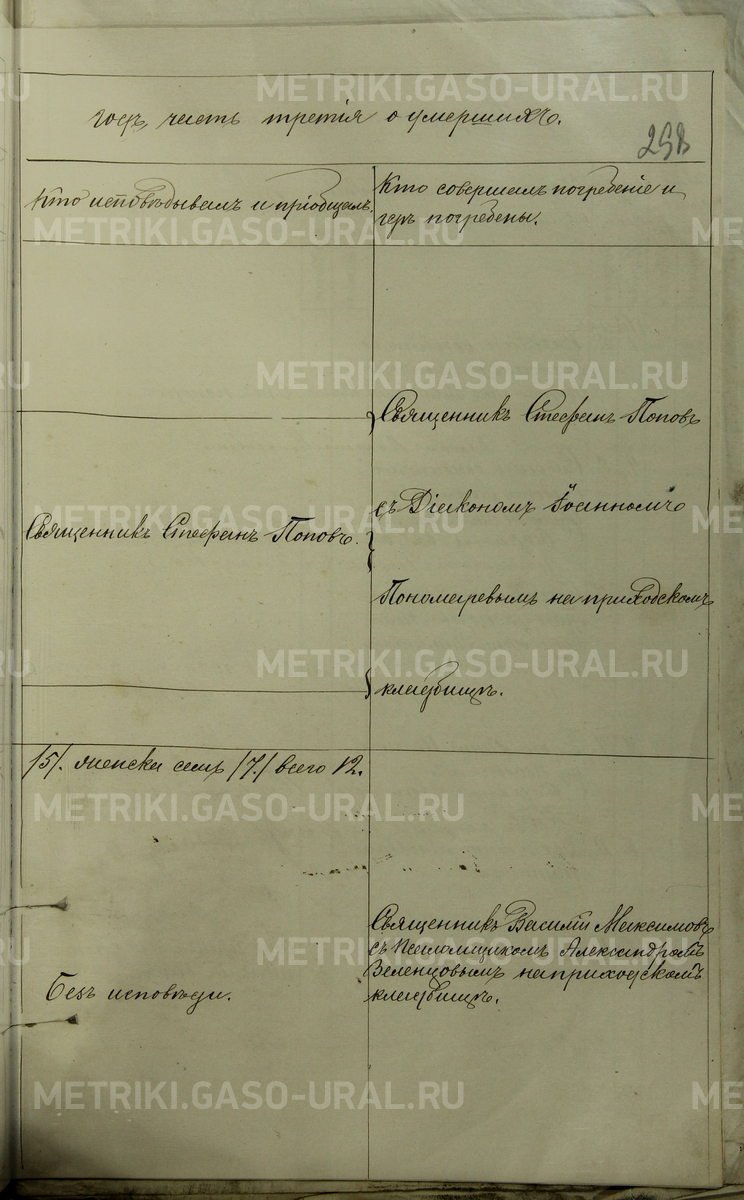 годъ, часть третія о умершихъ.
258
Кто исповѣдывалъ и пріобщалъ.
Кто совершалъ погребеніе и
гдѣ погребены.
Священникъ Стефанъ Поповъ
съ Діакономъ Іоанномъ
Священникъ Стефанъ Поповъ.
Пономаревымъ на приходскомъ
кладбищѣ.
/5/. женска семь /7./ всего 12.
Священникъ Василій Максимовъ
съ Псаломщикомъ Александромъ
Зеленцовымъ на приходскомъ
кладбищѣ.
Безъ исповѣди.
METRIKI.GASO-URAL.RU